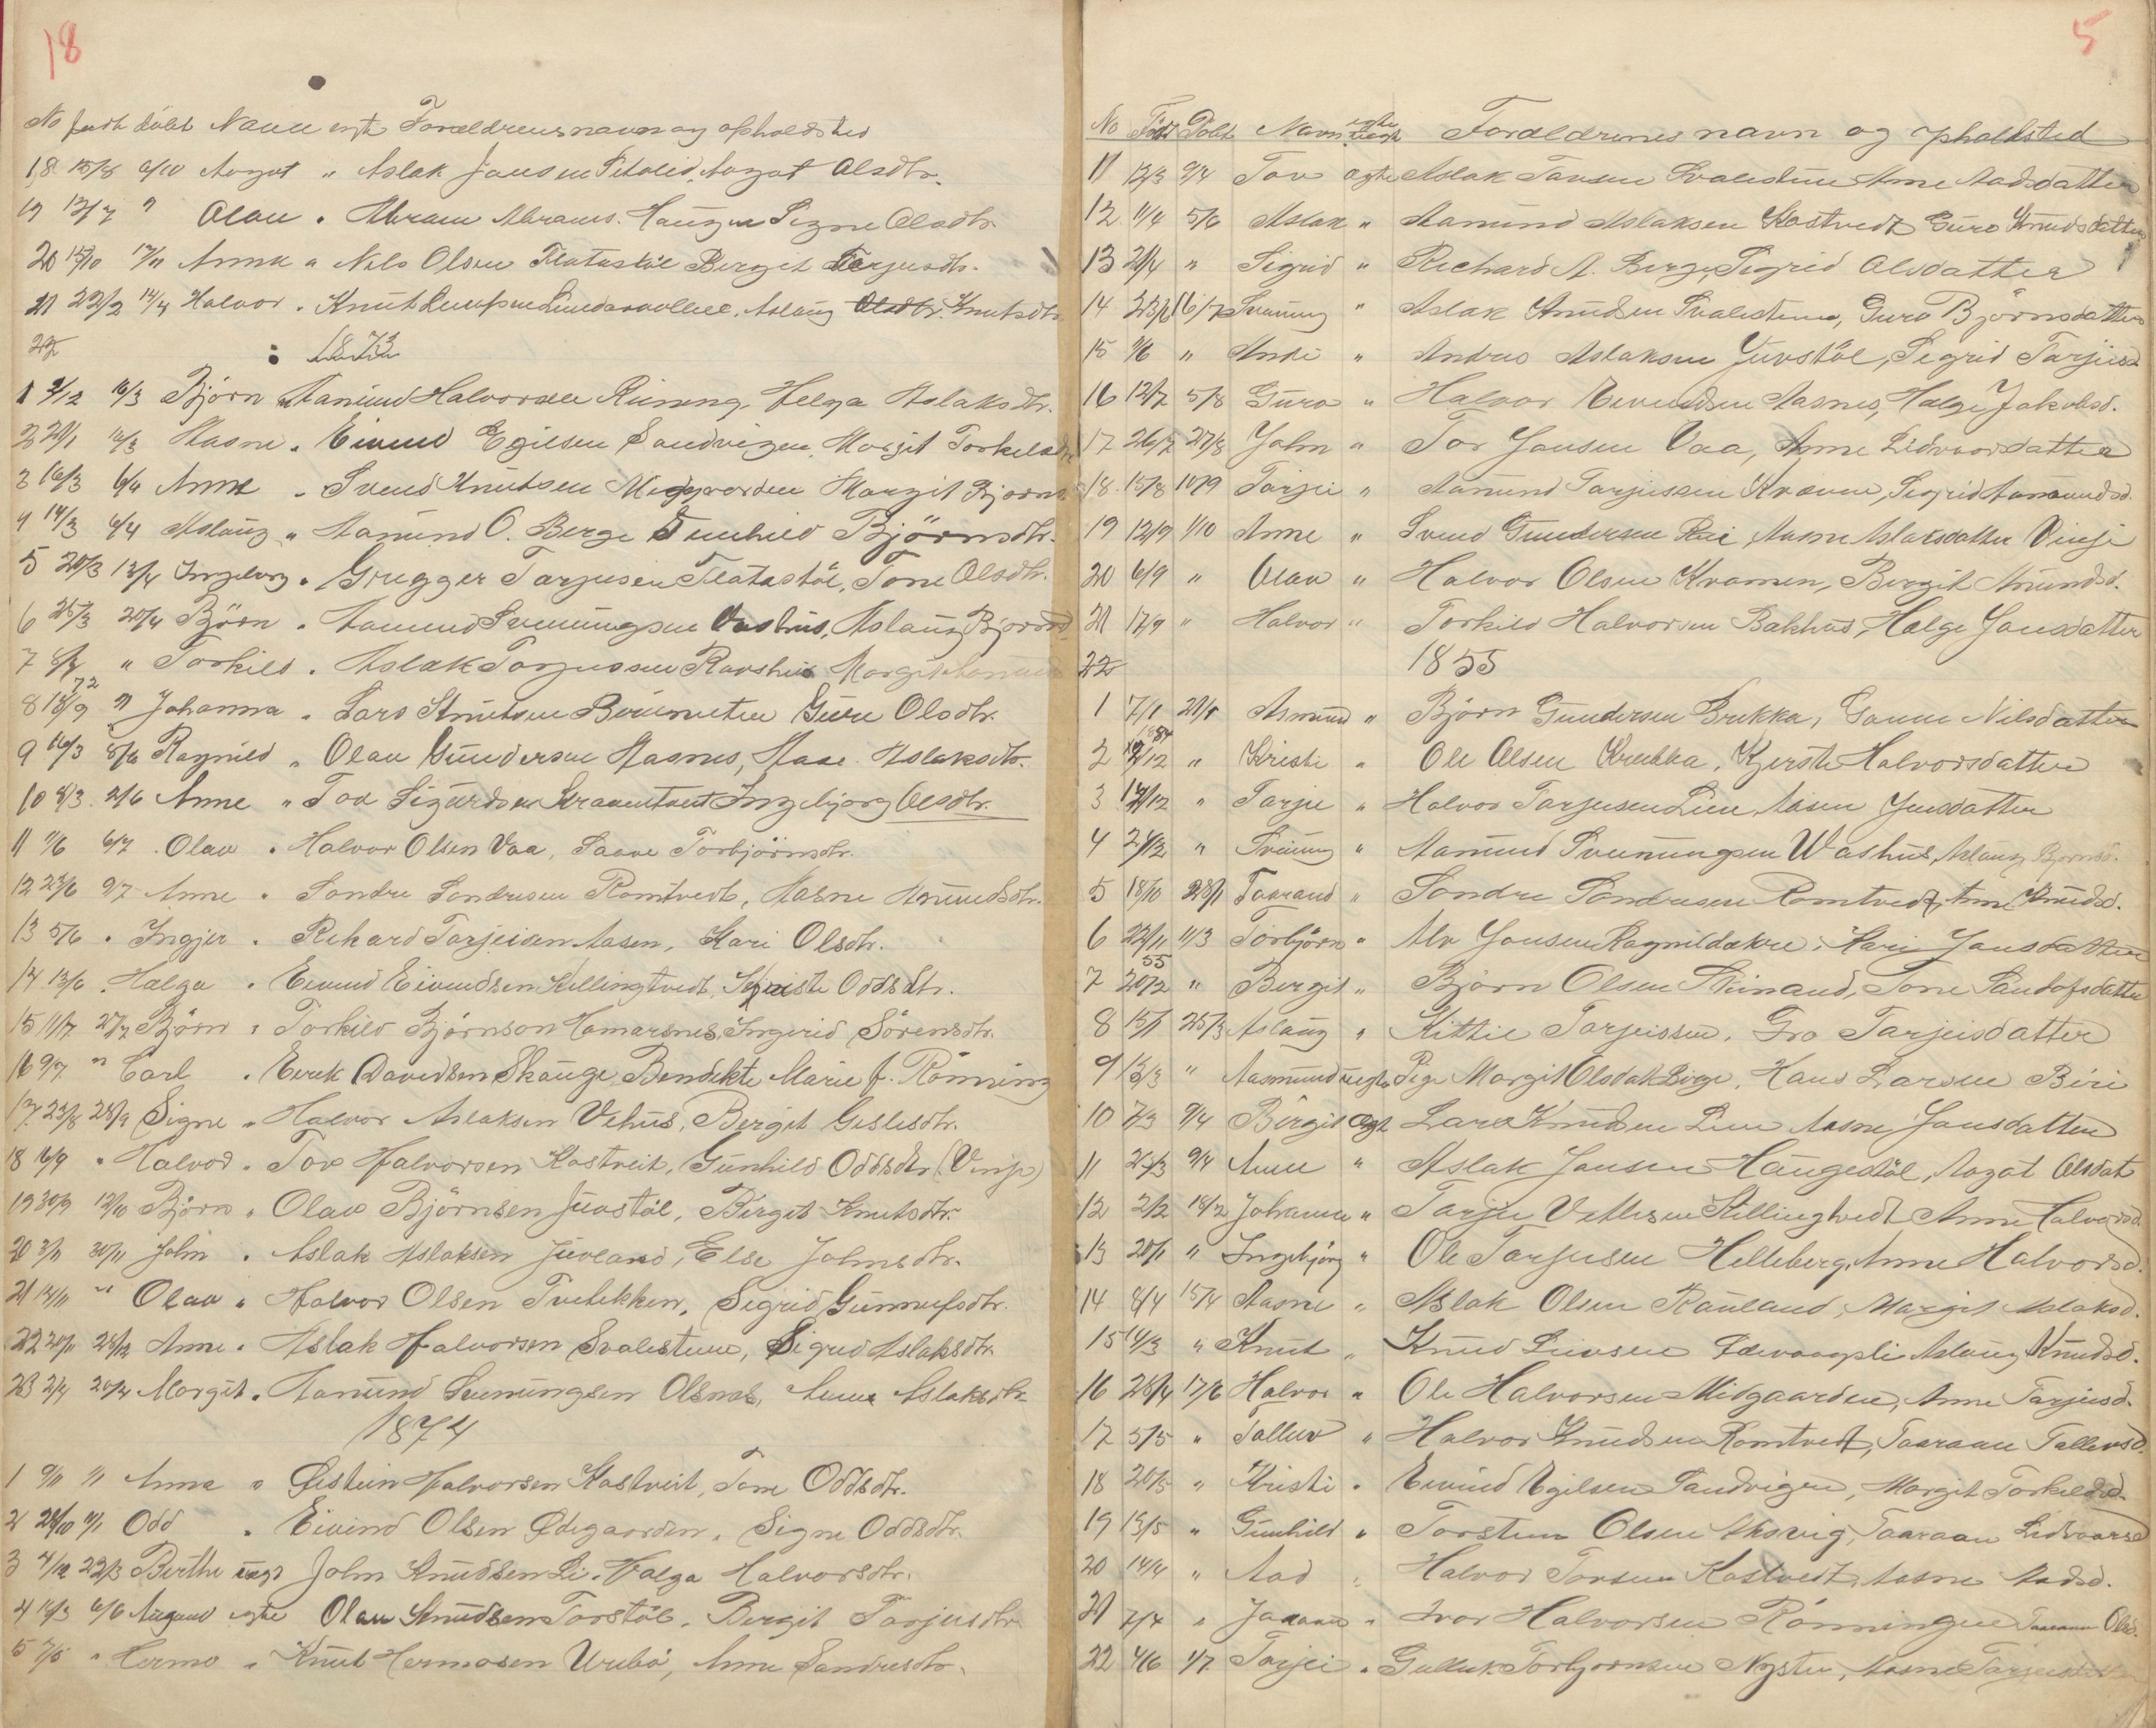 18
No født døbt Navn egte Forældrens navn og opholdsted
18 15/8 6/10 Aagot " Aslak Jansen Aagot Olsdtr.
19 12/7 " Olav " Abram Abrams. Haugen Signe Olsdtr.
20 15/10 17/11 Anne " Nils Olsen Flatastöl Berget Terjusdtr.
21 22/2 14/4 Halvor " Knut Aslaug Olsdtr. Knutsdtr
22 1873
1 2/12 16/3 Björn " Aamund Halvorsen Helga Aslaksdtr.
2 20/1 16/3 Aasne " Eivind Egilsen Sandvigen, Margit Torkelsdtr
3 16/3 6/4 Anne " Svend Knutsen Midgaarden Margit Bjorns
4 14/3 6/4 Aslaug " Aamund O. Berge Gunhild Björnsdtr.
5 20/3 13/4 Ingeborg " Gregger Tarjusen Flatastöl, Tone Olsdtr.
6 25/3 20/4 Björn " Aamund Sveinungsen Vashus, Aslaug Bjornsd
7 8/4 " Torkild " Aslak Targussen Ravshus Margit
72
8 18/9 " Johanna " Lars Knutsen Guro Olsdtr.
9 16/3 8/6 Ragnild " Olav Gundersen Aasnes, Aase Aslaksdtr.
10 8/3 2/6 Anne " Tov Sigurdsen Ingebjorg Olsdtr.
11 1/6 6/7 Olav " Halvor Olsen Vaa, Saave Torbjörnsdtr.
12 23/6 9/7 Anne " Sondre Sondresen Romtvedt, Aasne Amundsdtr.
13 5/6 " Ingjer " Rikard Tarjeisen Aasen, Kari Olsdtr.
14 13/6 " Halga " Eivind Eivindsen Kellingtvedt, Oddsdtr.
15 11/7 27/7 Björn " Torkild Björnson Hamarsnes, Ingerid Sörensdtr.
16 9/7 " Carl " Eerek Davidsen Skauge Bendikte Marie f. Rönning
17 23/8 28/9 Signe " Halvor Aslaksen Vehus, Bergit Gislesdtr.
18 6/9 " Halvor " Tov Halvorsen Kostveit, Gunhild Oddsdtr (Vinje)
19 30/9 12/10 Björn " Olav Björnsen Juvstöl, Birgit Knutsdtr.
20 3/11 30/11 John " Aslak Aslaksen Juvland, Else Johnsdtr.
21 14/11 " Olav " Halvor Olsen Tvelekken, Sigrid Gunnufsdtr.
22 20/11 28/12 Anne " Aslak Halvorsen Svalestuen, Sigrid Aslaksdtr.
23 2/4 20/4 Margit " Aamund Sveinungsen Olsnes, Anne Aslaksdtr
1874
1 9/11 1/1 Anna " Øistein Halvorsen Kostveit, Tone Oddsdtr.
2 28/10 11/1 Odd " Eivind Olsen Ødegaarden, Signe Oddsdtr.
3 4/12 22/3 Birthe uegt John Knudsen Li, Halga Halvorsdtr.
4 16/3 6/6 Aagund egte Olav Knudsen Torstöl, Bergit Tarjusdtr
5 7/5 " Hermo " Knut Hermosen Urebö, Anne Sandresdtr.
5
No Født Døbt Navn egte uegte Forældrenes navn og opholdsted
11 12/3 9/4 Tov egte Aslak Tovsen Svalestuen Anne Aadsdatter
12 11/4 5/6 Aslak " Aamund Aslaksen Kostvedt Guro Knudsdatter
13 21/4 " Sigrid " Richard A. Berge, Sigrid Olsdatter
14 23/6 16/7 Sveinung " Aslak Knudsen Svalestuen, Guro Björnsdatter
15 9/6 " Andr " Andres Aslaksen Juvstöl, Sigrid Tarjeisd
16 12/7 5/8 Guro " Halvor Eivindsen Aasnes, Halge Jakobsd.
17 26/7 27/8 John " Tor Jansen Vaa, Anne Lidvorsdatter
18 15/8 10/9 Tarjei " Aamund Tarjeissen Kraven, Sigrid Aamundsd.
19 12/9 1/10 Anne " Svend Gundersen Rui, Aasne Aslaksdatter Vinje
20 6/9 " Olav " Halvor Olsen Kramen, Bergit Amundsd.
21 17/9 " Halvor " Torkild Halvorsen Bakhus, Halge Jansdatter
22 1855
1 7/1 21/1 Asmund " Björn Gundersen Brekka, Gunne Nilsdatter
1854
2 12/12 " Kristi " Ole Olsen Krekka, Kjersti Halvorsdatter
3 14/12 " Tarje " Halvor Tarjeisen Lien, Aasen Jensdatter
4 24/12 " Sveinung " Aamund Sveinungsen Washus, Aslaug Bjornsd.
5 18/10 28/1 Taarand " Sondre Sondresen Romtvedt, Anne Knudsd.
6 22/11 11/3 Torbjörn " Alv Jansen Ragnildakre, Kari Jansdatter
55
7 20/2 " Bergit " Björn Olsen Skinand, Tone Sandofsdatter
8 15/1 25/3 Aslaug " Kittil Tarjeissen, Gro Tarjeisdatter
9 13/3 " Aasmund uegte Pige Margit Olsdat Berge, Hans Larsen Biri
10 7/3 9/4 Bergit egte Lars Knudsen Lien Aasne Jansdatter
11 25/3 9/4 Anne " Aslak Jansen Haugestöl, Aagot Olsdat
12 2/2 18/2 Johanne " Tarje Vetlesen Kellingtvedt Anne Halvorsd
13 20/1 " Ingebjörg " Ole Tarjusen Helleberg, Anne Halvorsd.
14 8/4 15/4 Aasne " Aslak Olsen Rauland, Margit Aslaksd.
15 14/3 " Knut " Knud Aslaug Knudsd.
16 28/4 17/6 Halvor " Ole Halvorsen Midgaarden, Anne Tarjeisd.
17 3/5 " Tallev " Halvor Knudsen Romtvedt, Taaraan Tallevsd
18 20/5 " Kristi " Eivind Egilsen Sandvigen, Margit Torkildsd.
19 13/5 " Gunhild " Torsten Olsen Aksvig, Taaraan Lidvaarsd
20 14/4 " Aad " Halvor Tovsen Kostvedt, Aasne Aadsd.
21 7/4 " " Ivar Halvorsen Rönningen Olsd.
22 4/6 1/7 Tarjei " Gulluk Torbjornsen Nystu, Aasne